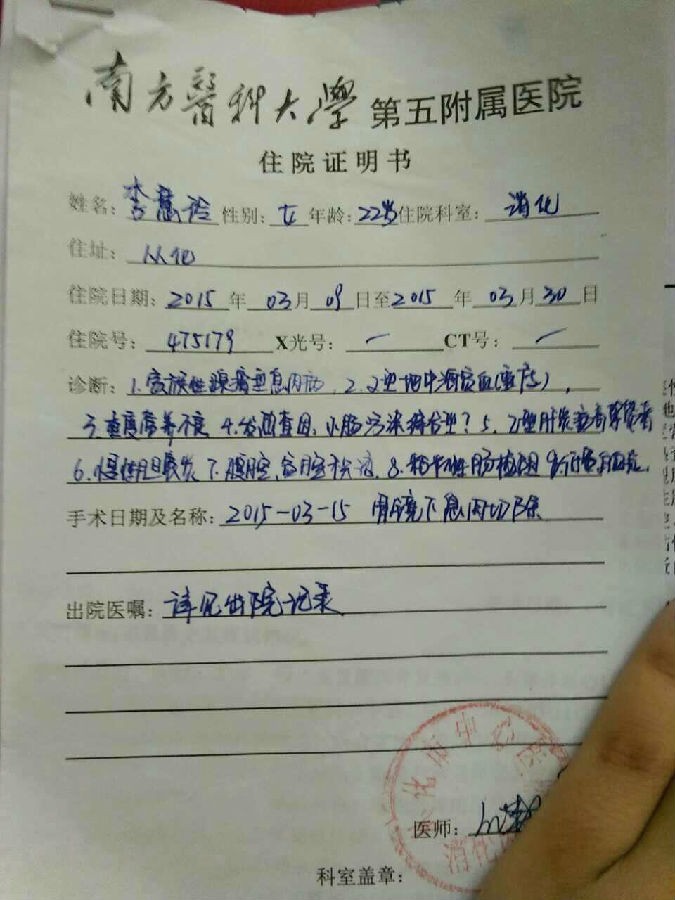 南方醫科大學 第五附属医院
住院证明书
姓名：李慧玲 性别：女 年龄：22岁 住院科室：消化
住址：从化
住院日期：2015年 03月09日至2015年 03月30日
住院号：475179 X光号：— CT号：—
诊断：1.家族性腺瘤型息肉病，2.α型地中海贫血(重度)，
3.重度营养不良 4.发热查因：小肠污染综合型？5.乙型肝炎
6.慢性胆囊炎 7.腹腔、盆腔积液 8.粘连性肠梗阻
手术日期及名称：2015-03-15 胃镜下息肉切除
出院医嘱：详见出院记录
化市中心医
医师：
消化
科室盖章：